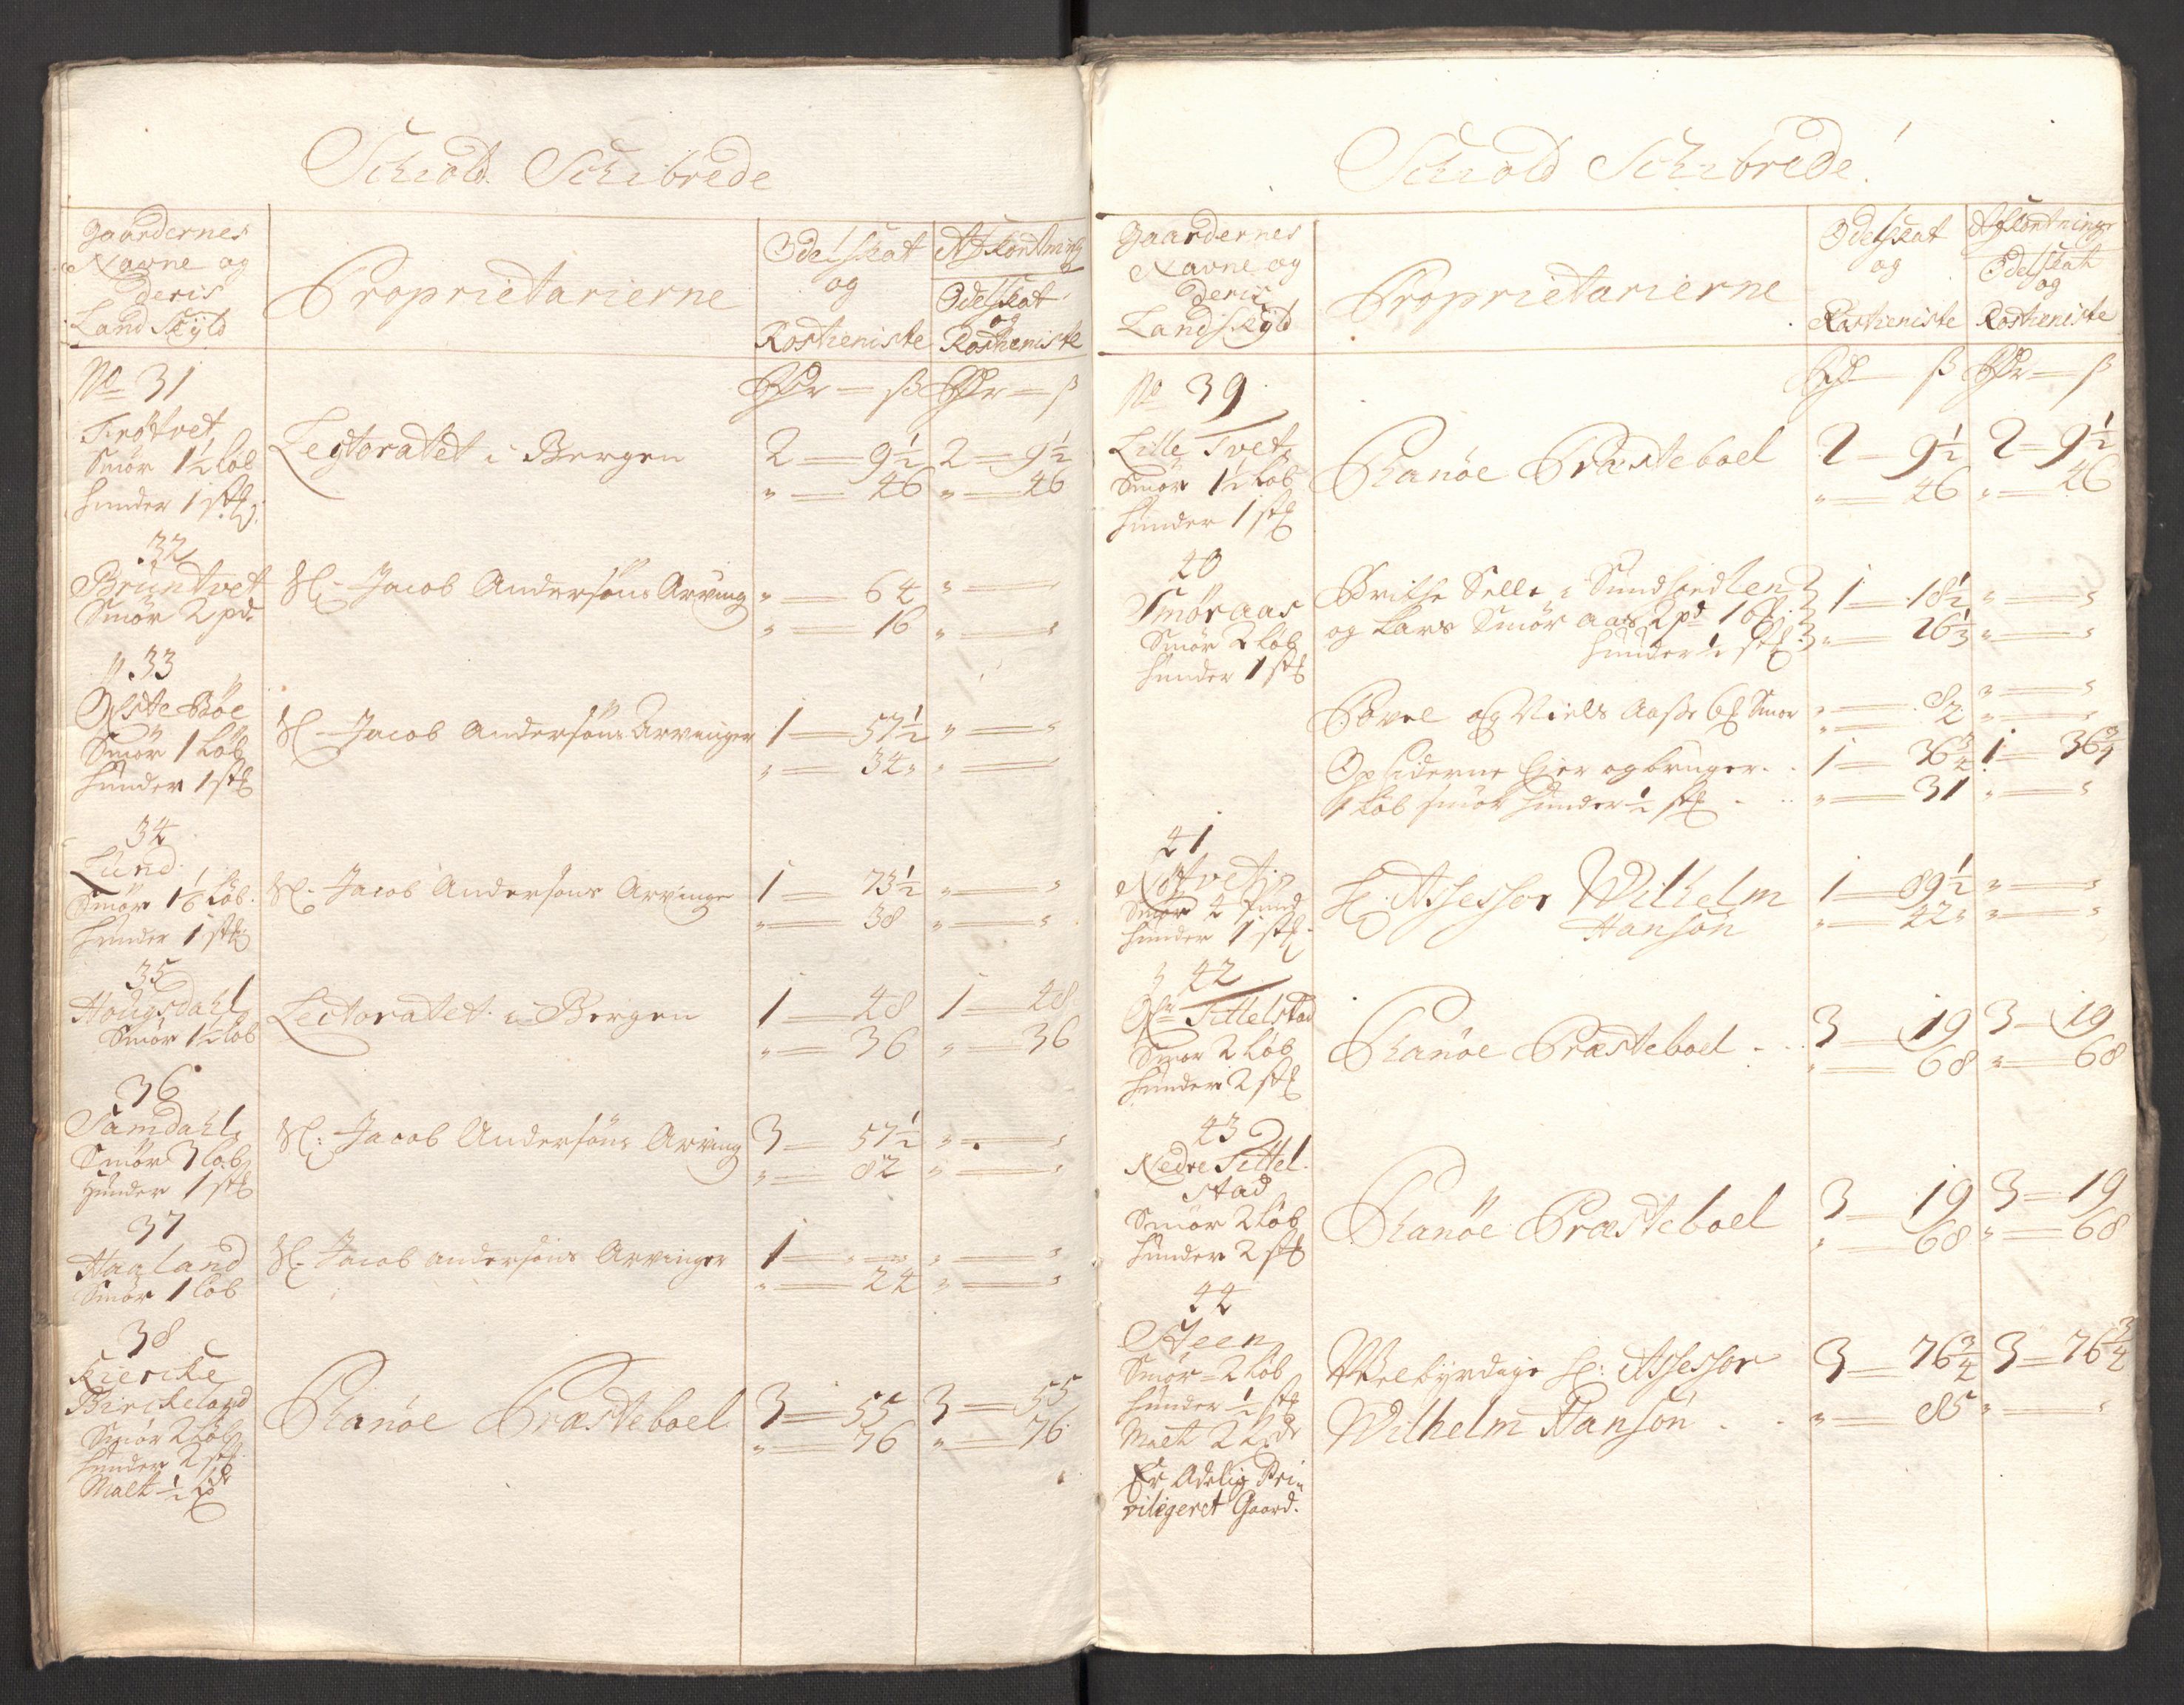 Schiold Schibrede
Gaardernes
Navne og
deris
Land Skyld
Proprietarierne
Odelskat
og
Rostieniste
Afkortning
Odelskat
og
Rostieniste
No 31
Rdr — ß Rdr — ß
Trøtvet
Smør 1½ løb
Hunder 1 stk
Legtoratet i Bergen
2 — 9½ 2 — 9½
" — 46 " — 46
32
Bruntvet
Smør 2 pd
Sl. Jacob Andersøns Arving
" — 64 " —
" — 16 " — "
33
Øfste Bøe
Smør 1 Løb
Hunder 1 stk
Sl. Jacob Andersøns Arvinger
1 — 57½ " — "
" — 34 " —
34
Lund
Smør 1⅙ Løb
Hunder 1 stk
Sl. Jacob Andersøns Arvinger
1 — 73½ " — "
" — 38 " — "
35
Hougsdahl
Smør 1½ løb
Lectoratet i Bergen
1 — 48 1 — 48
" — 36 " — 36
36
Samdahl
Smør 3 løb
Hunder 1 stk
Sl: Jacob Andersøns Arving
3 — 57½ " — "
" — 82 " — "
37
Haaland
Smør 1 løb
Sl. Jacob Andersøns Arvinger
1 — " — " — "
" — 24 " — "
38
Kiercke
Birckeland
Smør 2 løb
Hunder 2 stk
Malt ½
Phanøe Præsteboel
3 — 55 3 — 55
" — 76 " — 76
Schiold Schibrede
Gaardernes
Navne og
deris
Landskyld
Proprietarierne
Odelskat
og
Rostieniste
Afkortning
Odelskat
og
Rostieniste
No 39
Rdl — ß Rdr — ß
Lille Tvet
Smør 1½ løb
Hunder 1 stk
Phanøe Præsteboel
2 — 9½ 2 — 9½
" — 46 " — 46
40
Smøraas
Smør 2 løb
Hunder 1 stk
Selle i Sundfiordlen
og Lars Smøraas 2 pd
Hunder ½ stk
1 — 18½ " — "
" — " — "
Povel og Niels Aase Smør
" — " — "
Opsiderne Eier og bruger
1 Løb smør Hunder ½ stk
1 — 36¾ 1 — 36¾
" — 31 " — "
41
Smør 4 pund
Hunder 1 stk
Sl. Assessor Wilhelm
Hansøn
1 — 89½ " — "
" — 42 " — "
42
Øfr Tittelstad
Smør 2 Løb
Hunder 2 stk
Phanøe Præsteboel
3 — 19 3 — 19
" — 68 " — 68
43
Nedre Tittel
stad
Smør 2 løb
Hunder 2 stk
Phanøe Præsteboel
3 — 19 3 — 19
" — 68 " — 68
44
Steen
Smør 2 løb
Hunder ½ stk
Malt 2
Er Adelig Pri
viligeret Gaard.
Welbyrdige Assessor
Wilhelm Hansøn
3 — 76¾ 3 — 76¾
" — 85 " — "